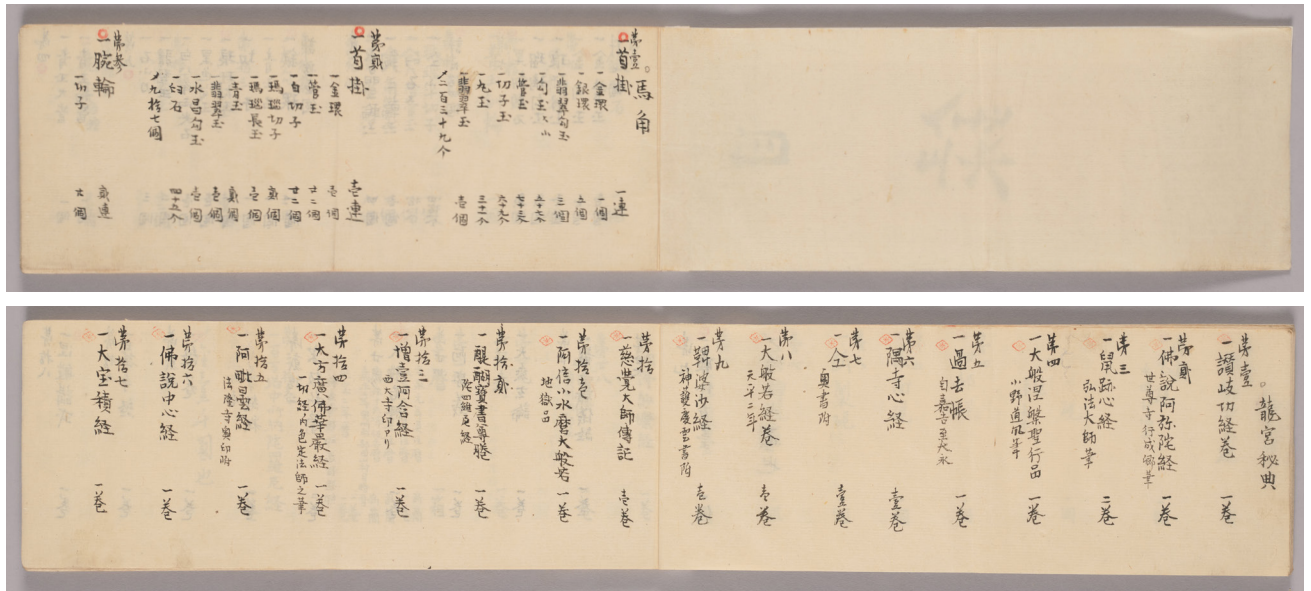 馬角
第壹
一首掛 一連
一金環 一個
一銀環 五個
一翡翠勾玉 三個
一勾玉大小
一管玉
一切子玉
一丸玉 三十一个
一翡翠玉 壱個
〆二百三十九个
第貳
一首掛 壱連
一金環 壱個
一管玉 廿二個
一白切子 廿二個
一瑪瑙切子 貳個
一瑪瑙長玉 壱個
一青玉 貳個
一翡翠玉 壱個
一水昌勾玉 壱個
一臼石 四十五个
〆九拾七個
第参
一腕輪 貳連
一切子 廿個
龍宮秘典
第壹
一讃岐切経巻 一巻
第貳
一佛説阿弥陀経 一巻
世尊寺行成卿筆
第三
一鼠跡心経 二巻
弘法大師筆
第四
一大般涅槃聖行品 一巻
小野道風筆
第五
一過去帳 一巻
自嘉吉至大永
第六
一隅寺心経 壹巻
第七
一仝 壹巻
奥書附
第八
一大般若経巻 壱巻
天平二年
第九
一鞞婆沙経 壱巻
神護慶雲書附
第拾
一慈覚大師傳記 壱巻
第拾壱
一阿信小水麿大般若 一巻
地獄品
第拾貳
一醍醐寶書尊勝 一巻
第拾三
一増壹阿含経 一巻
西大寺印アリ
第拾四
一大方廣佛華嚴経 一巻
一切経ノ内色定法師之筆
第拾五
一阿毗曇経 一巻
法隆寺奥印附
第拾六
一佛説中心経 一巻
第拾七
一大宝積経 一巻